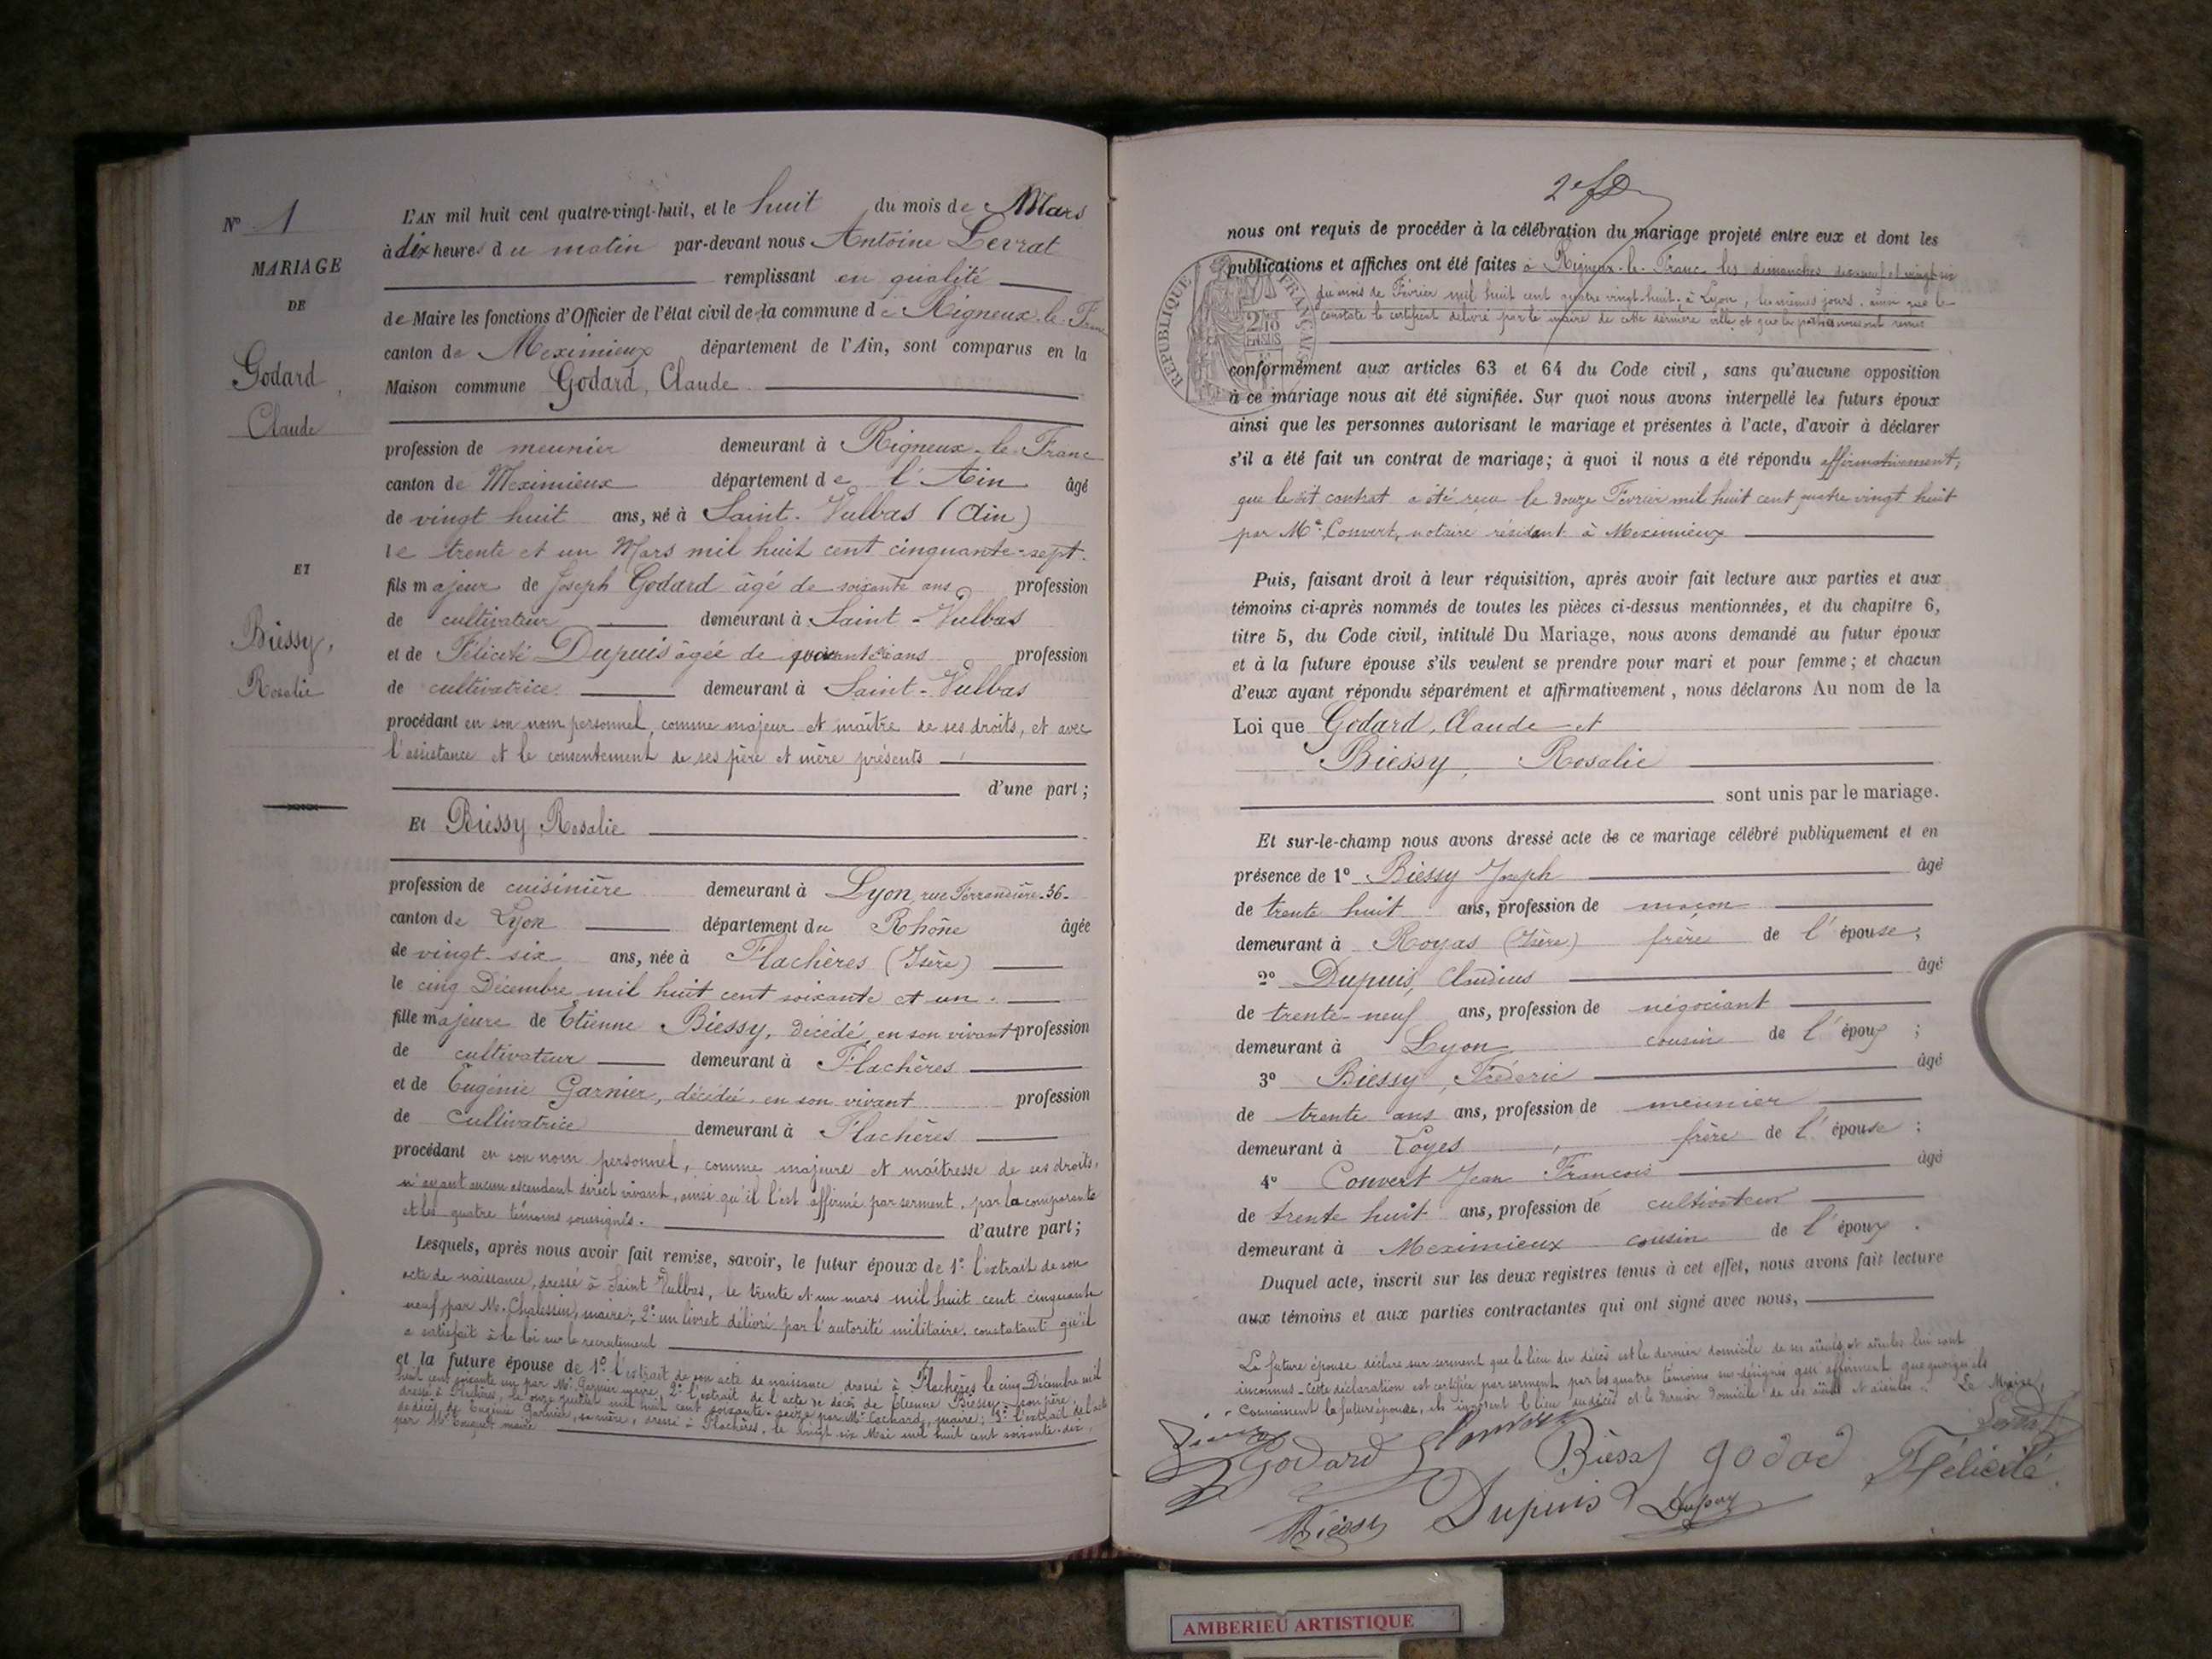 N° 1
MARIAGE
DE
Godard,
Claude
ET
Biessy,
Rosalie
L'AN mil huit cent quatre-vingt-huit, et le huit du mois de Mars
à dix heures du matin par-devant nous Antoine Levrat
remplissant en qualité
de Maire les fonctions d'Officier de l'état civil de la commune de Rigneux-le-Franc
canton de Meximieux département de l'Ain, sont comparus en la
Maison commune Godard, Claude
profession de meunier demeurant à Rigneux-le-Franc
canton de Meximieux département de l'Ain âgé
de vingt huit ans, né à Saint-Vulbas (Ain)
le trente et un Mars mil huit cent cinquante-sept.
fils majeur de Joseph Godard âgé de soixante ans profession
de cultivateur demeurant à Saint-Vulbas
et de Félicité Dupuis âgée de ans profession
de cultivatrice demeurant à Saint-Vulbas
procédant en son nom personnel, comme majeur et maître de ses droits, et avec
l'assistance et le consentement de ses père et mère présents
d'une part;
Et Biessy Rosalie
profession de cuisinière demeurant à Lyon, rue Ferrandière-36-
canton de Lyon département du Rhône âgée
de vingt-six ans, née à Flachères (Isère)
le cinq Décembre mil huit cent soixante et un.
fille majeure de Etienne Biessy, décédé, en son vivant profession
de cultivateur demeurant à Flachères
et de Eugénie Garnier, décédée, en son vivant profession
de cultivatrice demeurant à Flachères
procédant en son nom personnel, comme majeure et maîtresse de ses droits,
n'ayant aucun ascendant direct vivant, ainsi qu'il l'est affirmé par serment, par la comparante
et les quatre témoins soussignés. d'autre part;
Lesquels, après nous avoir fait remise, savoir, le futur époux de 1° l'extrait de son
acte de naissance, dressé à Saint Vulbas, le trente et un mars mil huit cent cinquante
neuf, par M. Chalessin, maire; 2° un livret délivré par l'autorité militaire, constatant qu'il
a satisfait à la loi sur le recrutement
et la future épouse de 1° l'extrait de son acte de naissance, dressé à Flachères le cinq Décembre mil
huit cent soixante un par Mr Garnier maire, 2° l'extrait de l'acte de décès de Etienne Biessy, son père,
dressé à Flachères, le onze juillet mil huit cent soixante-seize par Mr Cochard, maire; 3° l'extrait de l'acte
de décès de Eugénie Garnier, sa mère, dressé à Flachères, le vingt six Mai mil huit cent soixante-dix,
par Mr maire
nous ont requis de procéder à la célébration du mariage projeté entre eux et dont les
publications et affiches ont été faites à Rigneux-le-Franc les dimanches dixneuf et vingt-six
du mois de Février mil huit cent quatre vingt-huit, à Lyon, les mêmes jours, ainsi que le
constate le certificat délivré par le maire de cette dernière ville et que les parties nous ont remis
RÉPUBLIQUE FRANÇAISE
conformément aux articles 63 et 64 du Code civil, sans qu'aucune opposition
à ce mariage nous ait été signifiée. Sur quoi nous avons interpellé les futurs époux
ainsi que les personnes autorisant le mariage et présentes à l'acte, d'avoir à déclarer
s'il a été fait un contrat de mariage; à quoi il nous a été répondu affirmativement,
que le dit contrat a été reçu le douze Février mil huit cent quatre vingt huit
par Me Convert, notaire résidant à Meximieux
Puis, faisant droit à leur réquisition, après avoir fait lecture aux parties et aux
témoins ci-après nommés de toutes les pièces ci-dessus mentionnées, et du chapitre 6,
titre 5, du Code civil, intitulé Du Mariage, nous avons demandé au futur époux
et à la future épouse s'ils veulent se prendre pour mari et pour femme; et chacun
d'eux ayant répondu séparément et affirmativement, nous déclarons Au nom de la
Loi que Godard, Claude et
Biessy, Rosalie
sont unis par le mariage.
Et sur-le-champ nous avons dressé acte de ce mariage célébré publiquement et en
présence de 1° Biessy Joseph âgé
de trente huit ans, profession de maçon
demeurant à Royas (Isère) frère de l'épouse;
2° Dupuis, Claudius âgé
de trente-neuf ans, profession de négociant
demeurant à Lyon cousin de l'époux;
3° Biessy, Fréderic âgé
de trente ans ans, profession de meunier
demeurant à Loyes, frère de l'épouse;
4° Convert Jean François âgé
de trente huit ans, profession de cultivateur
demeurant à Meximieux cousin de l'époux.
Duquel acte, inscrit sur les deux registres tenus à cet effet, nous avons fait lecture
aux témoins et aux parties contractantes qui ont signé avec nous,
La future épouse déclare sur serment que le lieu du décès est le dernier domicile de ses aïeuls et aïeules lui sont
inconnus - Cette déclaration est certifiée par serment par les quatre témoins sus-désignés qui affirment que quoiqu'ils
connaissent la future épouse, ils ignorent le lieu du décès et le dernier domicile de ses aïeuls et aïeules. Le Maire,
Levrat
Godard Convert Biessy godad Félicité
Biessy Dupuis Dupuy
AMBERIEU ARTISTIQUE